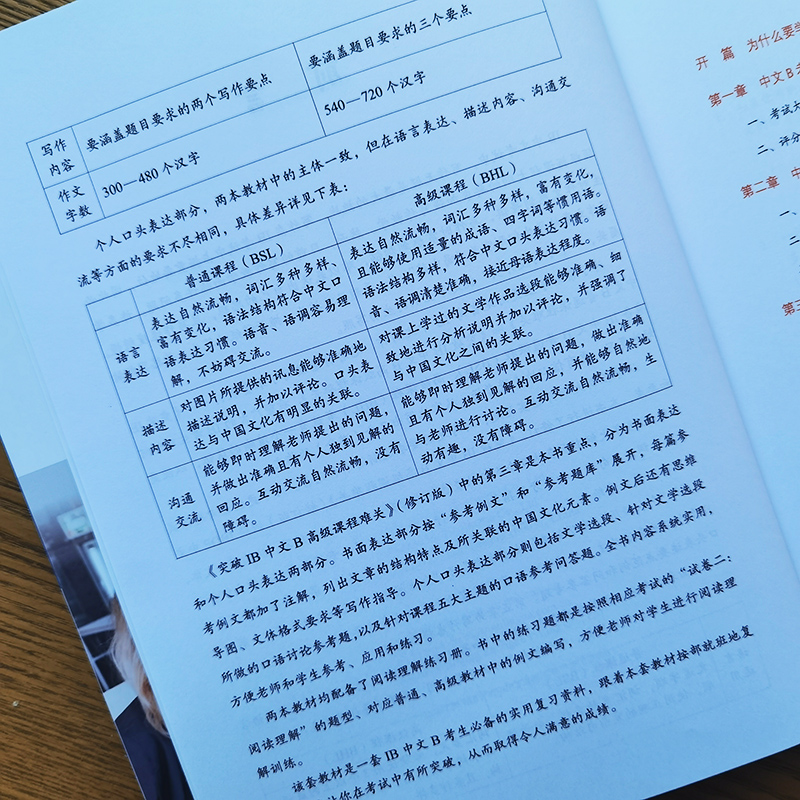 写作内容
要涵盖题目要求的两个写作要点
要涵盖题目要求的三个要点
作文字数
300—480 个汉字
540—720 个汉字
个人口头表达部分，两本教材中的主体一致，但在语言表达、描述内容、沟通交
流等方面的要求不尽相同，具体差异详见下表：
普通课程（BSL）
高级课程（BHL）
语言
表达
表达自然流畅，词汇多种多样、
富有变化，语法结构符合中文口
语表达习惯。语音、语调容易理
解，不妨碍交流。
表达自然流畅，词汇多种多样，富有变化，
且能够使用适量的成语、四字词等惯用语。
语法结构多样，符合中文口头表达习惯。语
音、语调清楚准确，接近母语表达程度。
描述
内容
对图片所提供的讯息能够准确地
描述说明，并加以评论。口头表
达与中国文化有明显的关联。
对课上学过的文学作品选段能够准确、细
致地进行分析说明并加以评论，并强调了
与中国文化之间的关联。
沟通
交流
能够即时理解老师提出的问题，
并做出准确且有个人独到见解的
回应。互动交流自然流畅，没有
障碍。
能够即时理解老师提出的问题，做出准确
且有个人独到见解的回应，并能够自然地
与老师进行讨论。互动交流自然流畅，生
动有趣，没有障碍。
《突破 IB 中文 B 高级课程难关》（修订版）中的第三章是本书重点，分为书面表达
和个人口头表达两部分。书面表达部分按“参考例文”和“参考题库”展开，每篇参
考例文都加了注解，列出文章的结构特点及所关联的中国文化元素。例文后还有思维
导图、文体格式要求等写作指导。个人口头表达部分则包括文学选段、针对文学选段
所做的口语讨论参考题，以及针对课程五大主题的口语参考问答题。全书内容系统实用，
方便老师和学生参考、应用和练习。
两本教材均配备了阅读理解练习册。书中的练习题都是按照相应考试的“试卷二：
阅读理解”的题型、对应普通、高级教材中的例文编写，方便老师对学生进行阅读理
解训练。
该套教材是一套 IB 中文 B 考生必备的实用复习资料，跟着本套教材按部就班地复
让你在考试中有所突破，从而取得令人满意的成绩。
开 篇 为什么要学
第一章 中文 B 考
一、考试
二、评分
第二章 中
一、
二
第三